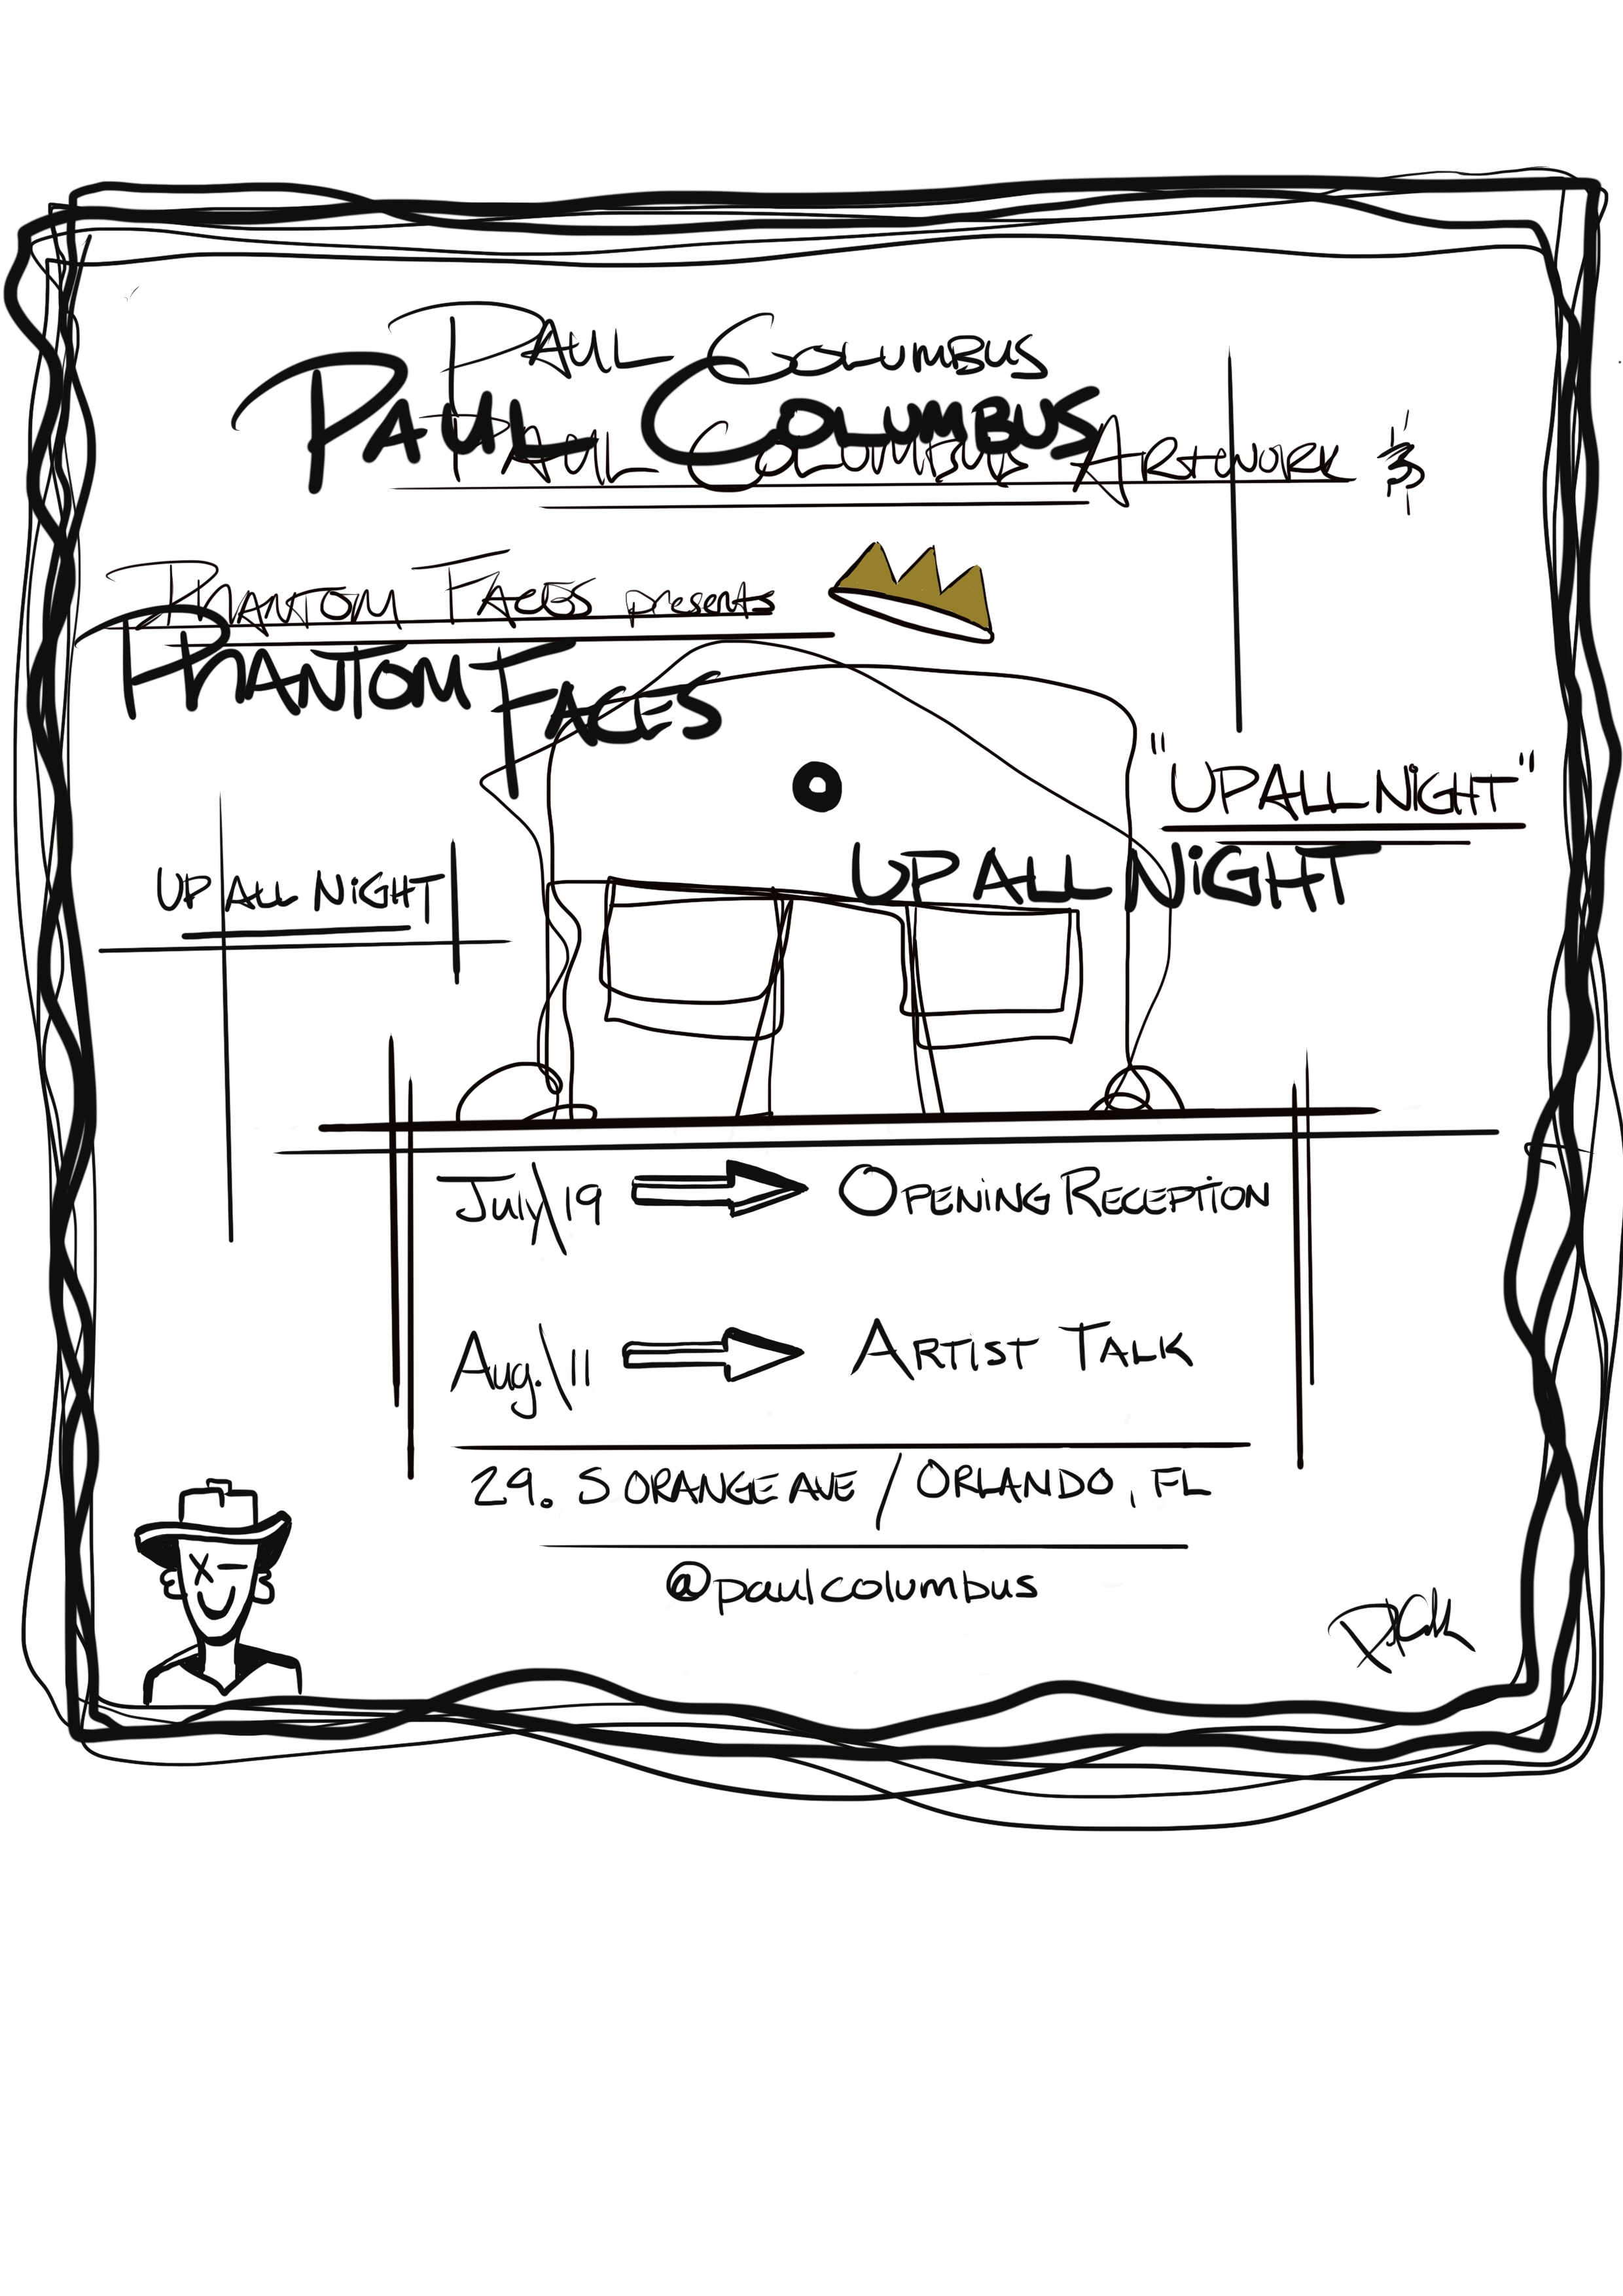 PAUL COLUMBUS
PAUL COLUMBUS
PAUL COLUMBUS ARTWORK &
PHANTOM FACES presents
PHANTOM FACES
"UP ALL NiGHT"
UP ALL NiGHT
UP ALL NiGHT
July 19 OPENiNG RECEPTiON
Aug. 11 ARTiST TALK
29. S ORANGE AVE / ORLANDO, FL
@paulcolumbus